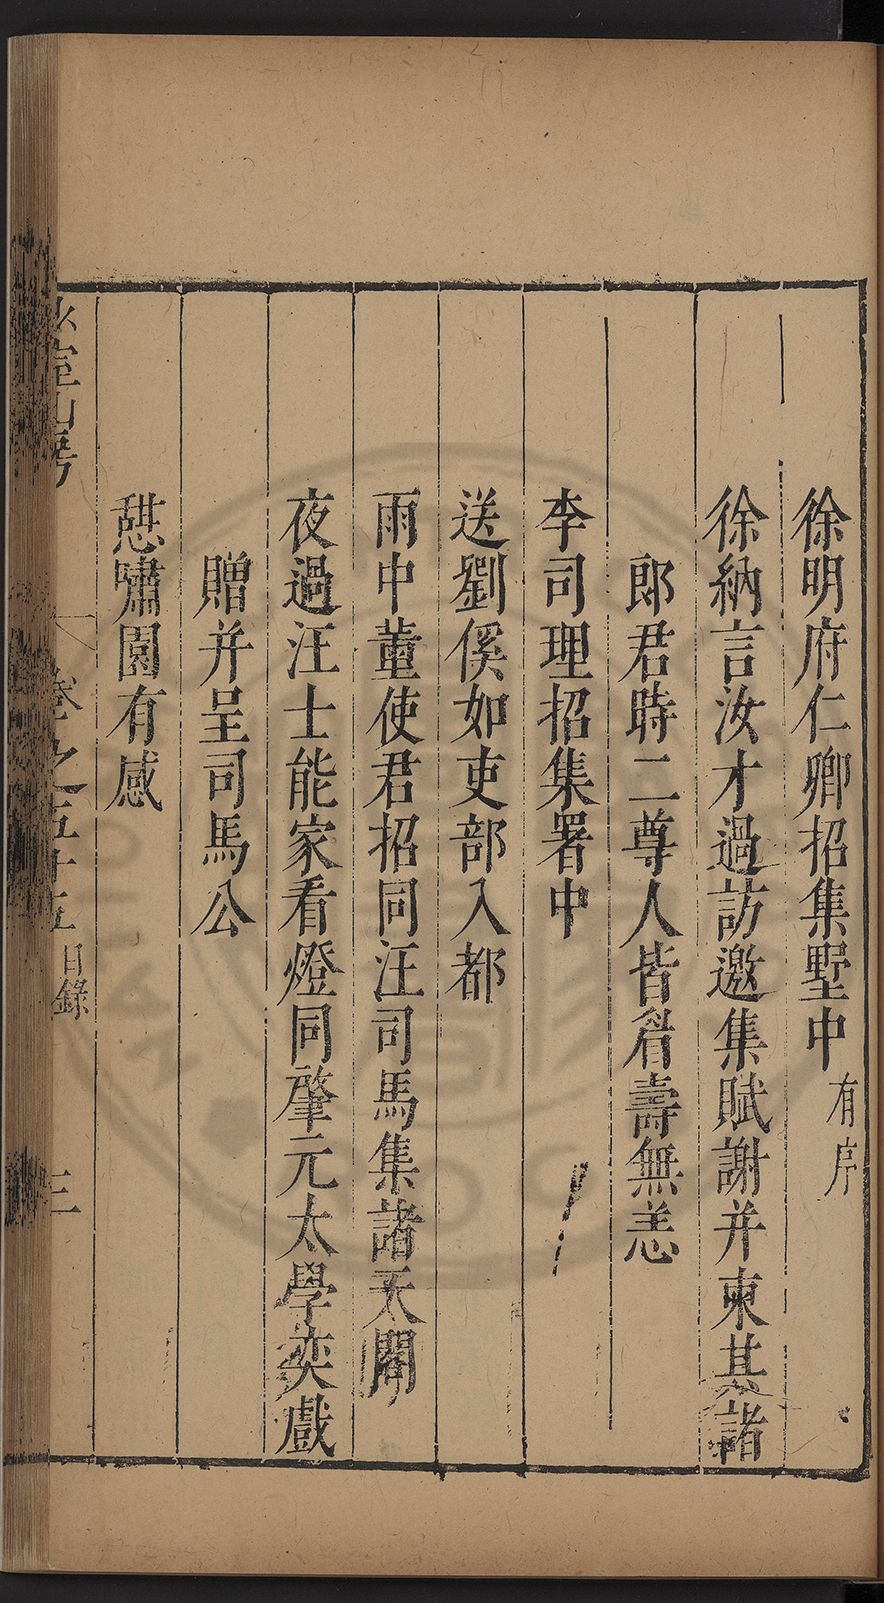 徐明府仁卿招集墅中有序
徐納言汝才過訪邀集賦謝并柬其諸
郎君時二尊人皆眉壽無恙
李司理招集署中
送劉傒如吏部入都
雨中董使君招同汪司馬集諸天閣
夜過汪士能家看燈同肇元太學奕戲
贈并呈司馬公
憇嘯園有感
山房 卷之五十五 目錄 三